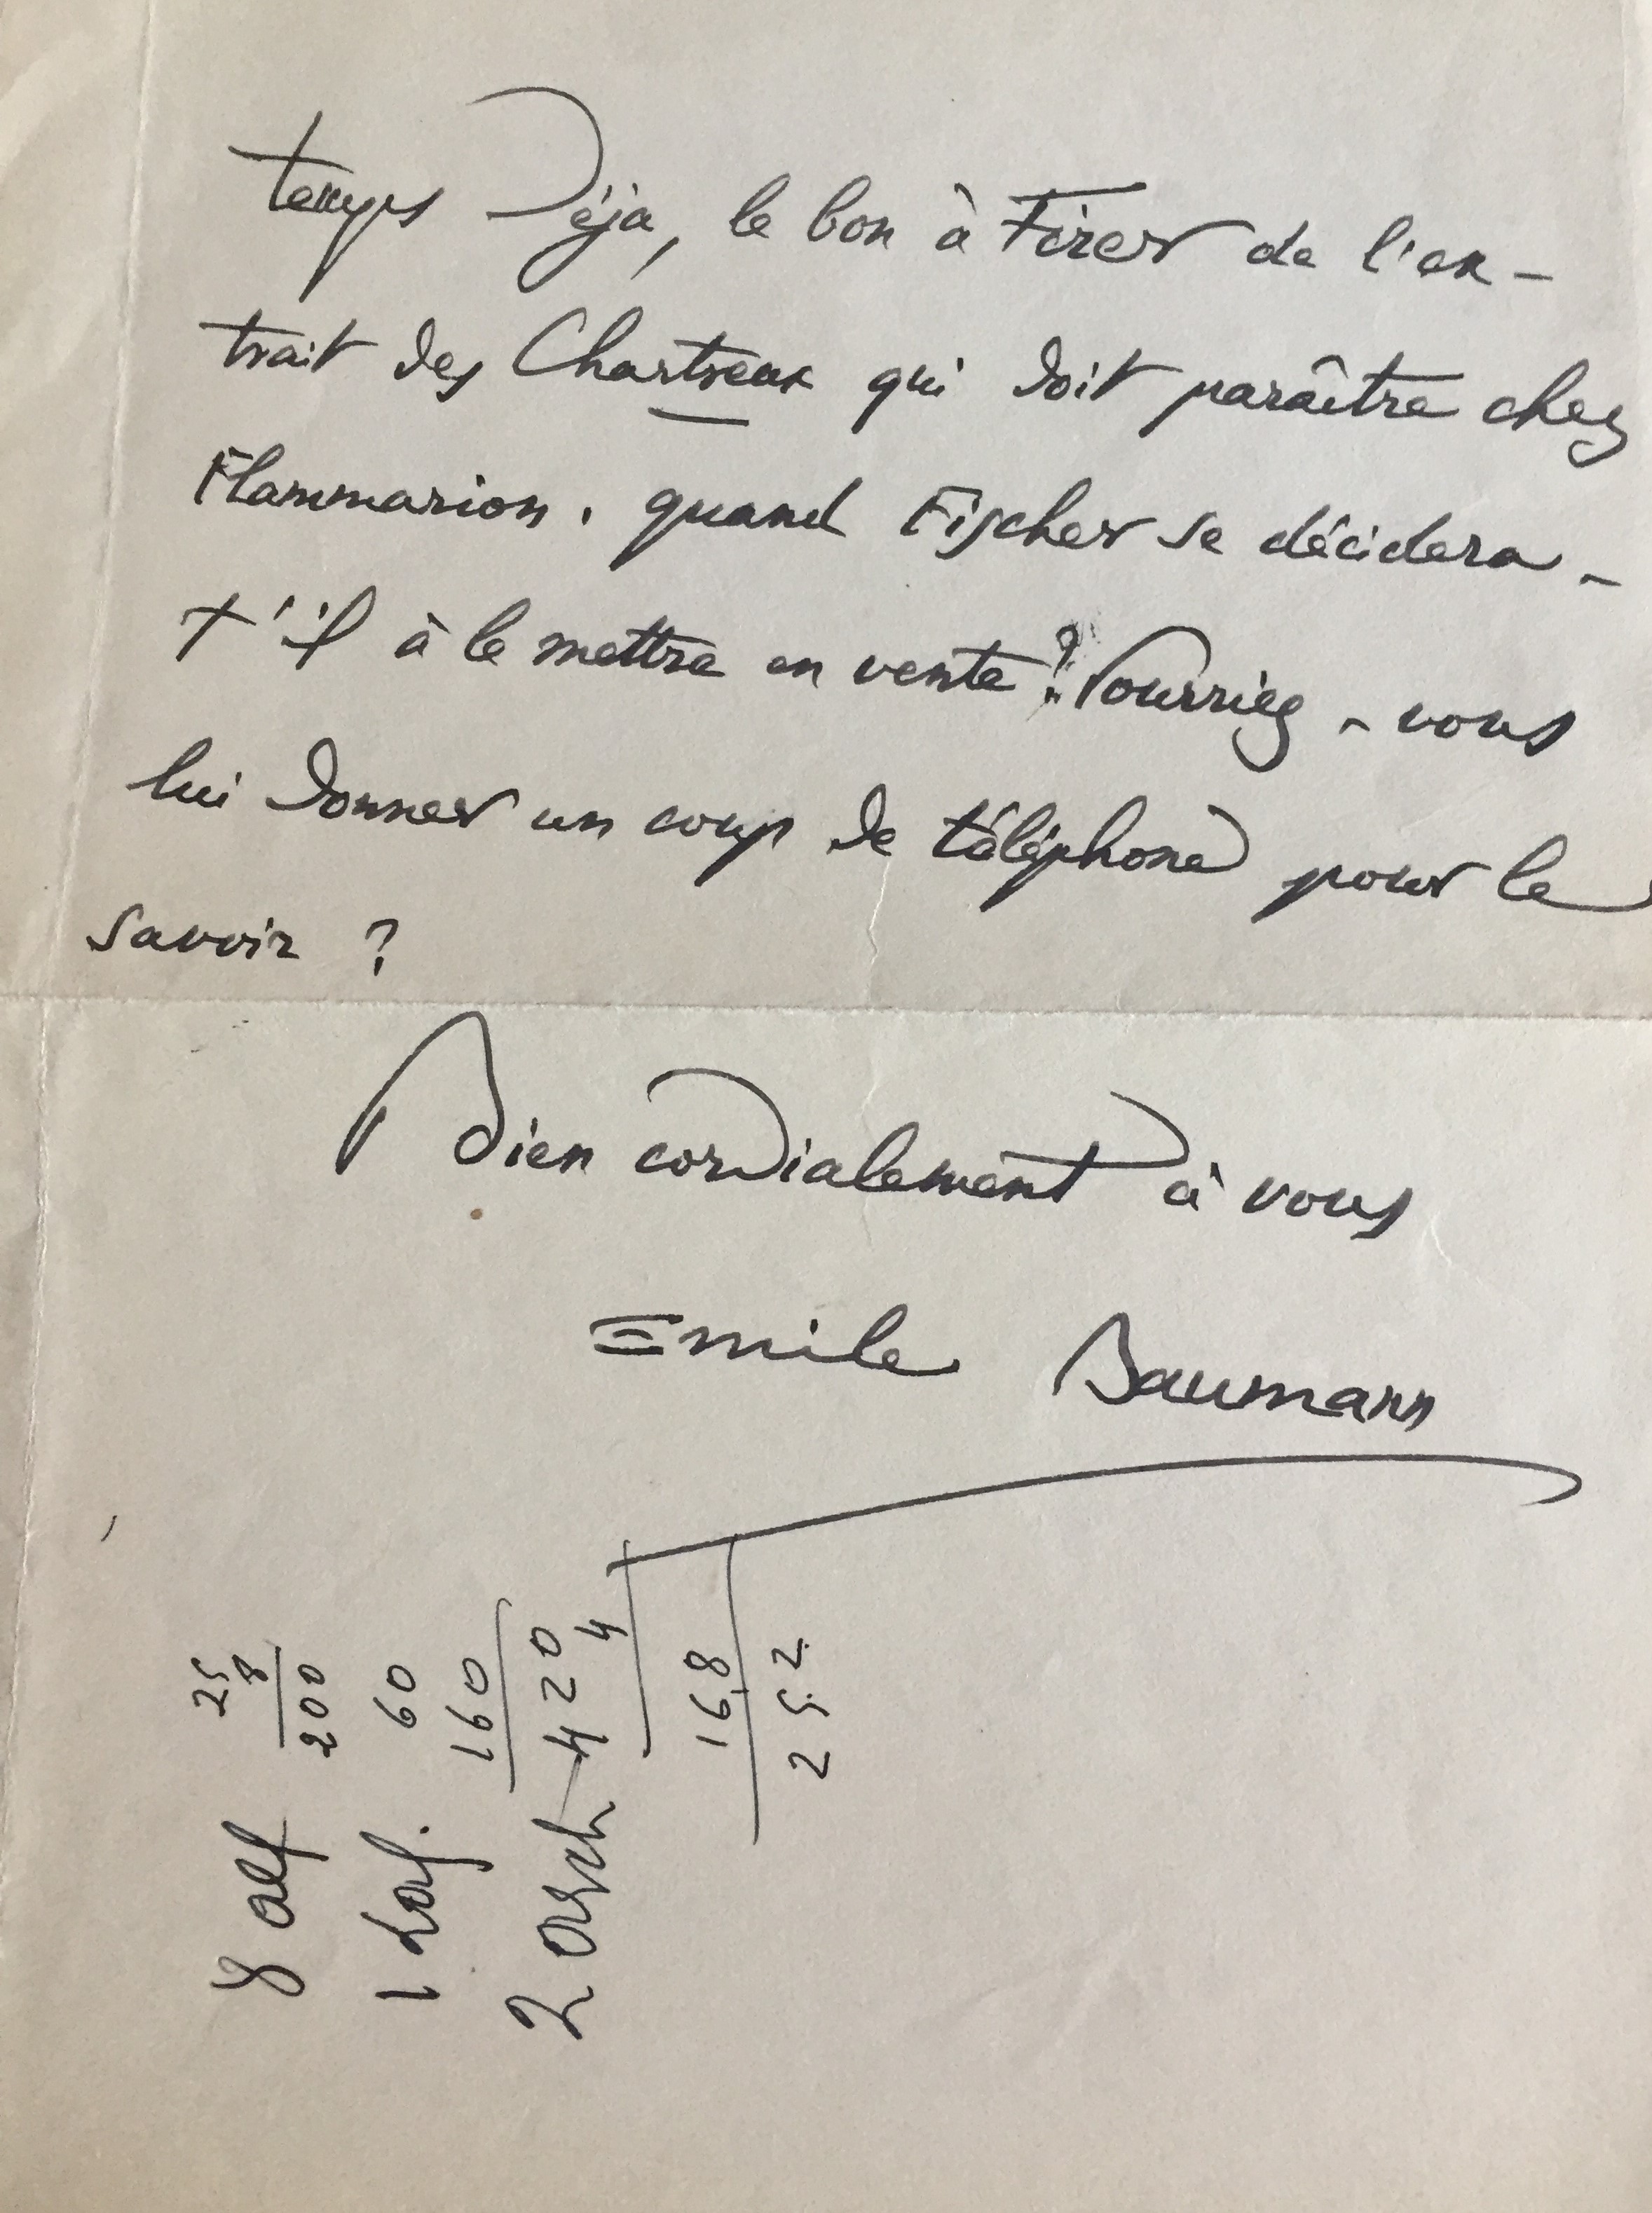 temps déjà, le bon à tirer de l'ex-
trait des Chartreux qui doit paraître chez
Flammarion. quand Fischer se décidera-
t'il à le mettre en vente? Pourriez-vous
lui donner un coup de téléphone pour le
savoir ?
Bien cordialement à vous
Emile Baumann
25
8
8 alf 200
1 60
160
2 420
4
168
252